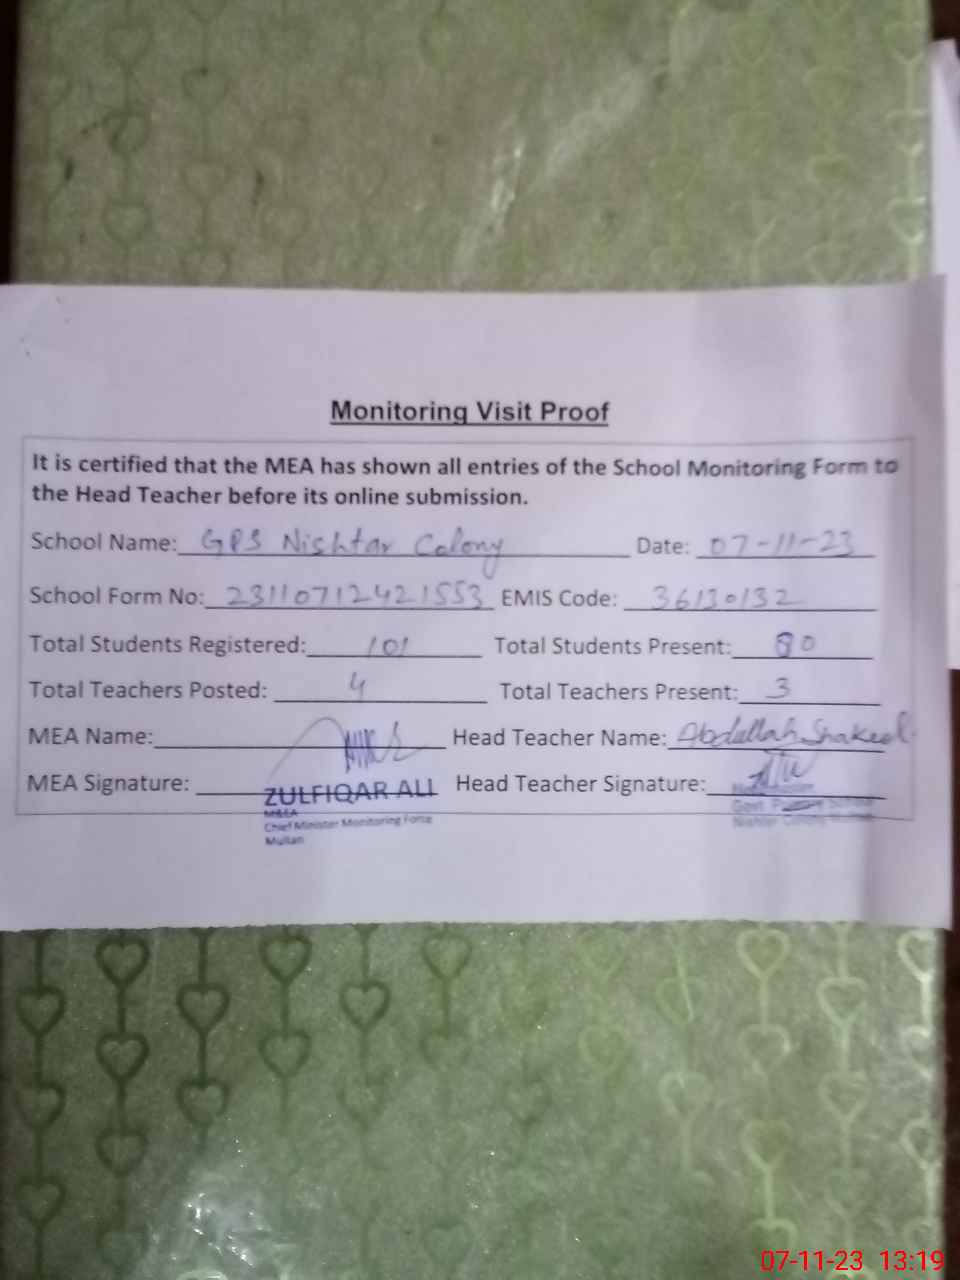 Monitoring Visit Proof
It is certified that the MEA has shown all entries of the School Monitoring Form to
the Head Teacher before its online submission.
School Name: GPS Nishtar Colony Date: 07-11-23
School Form No: 231107124421553 EMIS Code: 36130132
Total Students Registered: 101 Total Students Present: 80
Total Teachers Posted: 4 Total Teachers Present: 3
MEA Name: Head Teacher Name: Abdullah Shakeel
MEA Signature: Head Teacher Signature:
ZULFIQAR ALI
M&EA
Chief Minister Monitoring Force
Multan
Govt. Primary School
Nishtar Colony
07-11-23 13:19